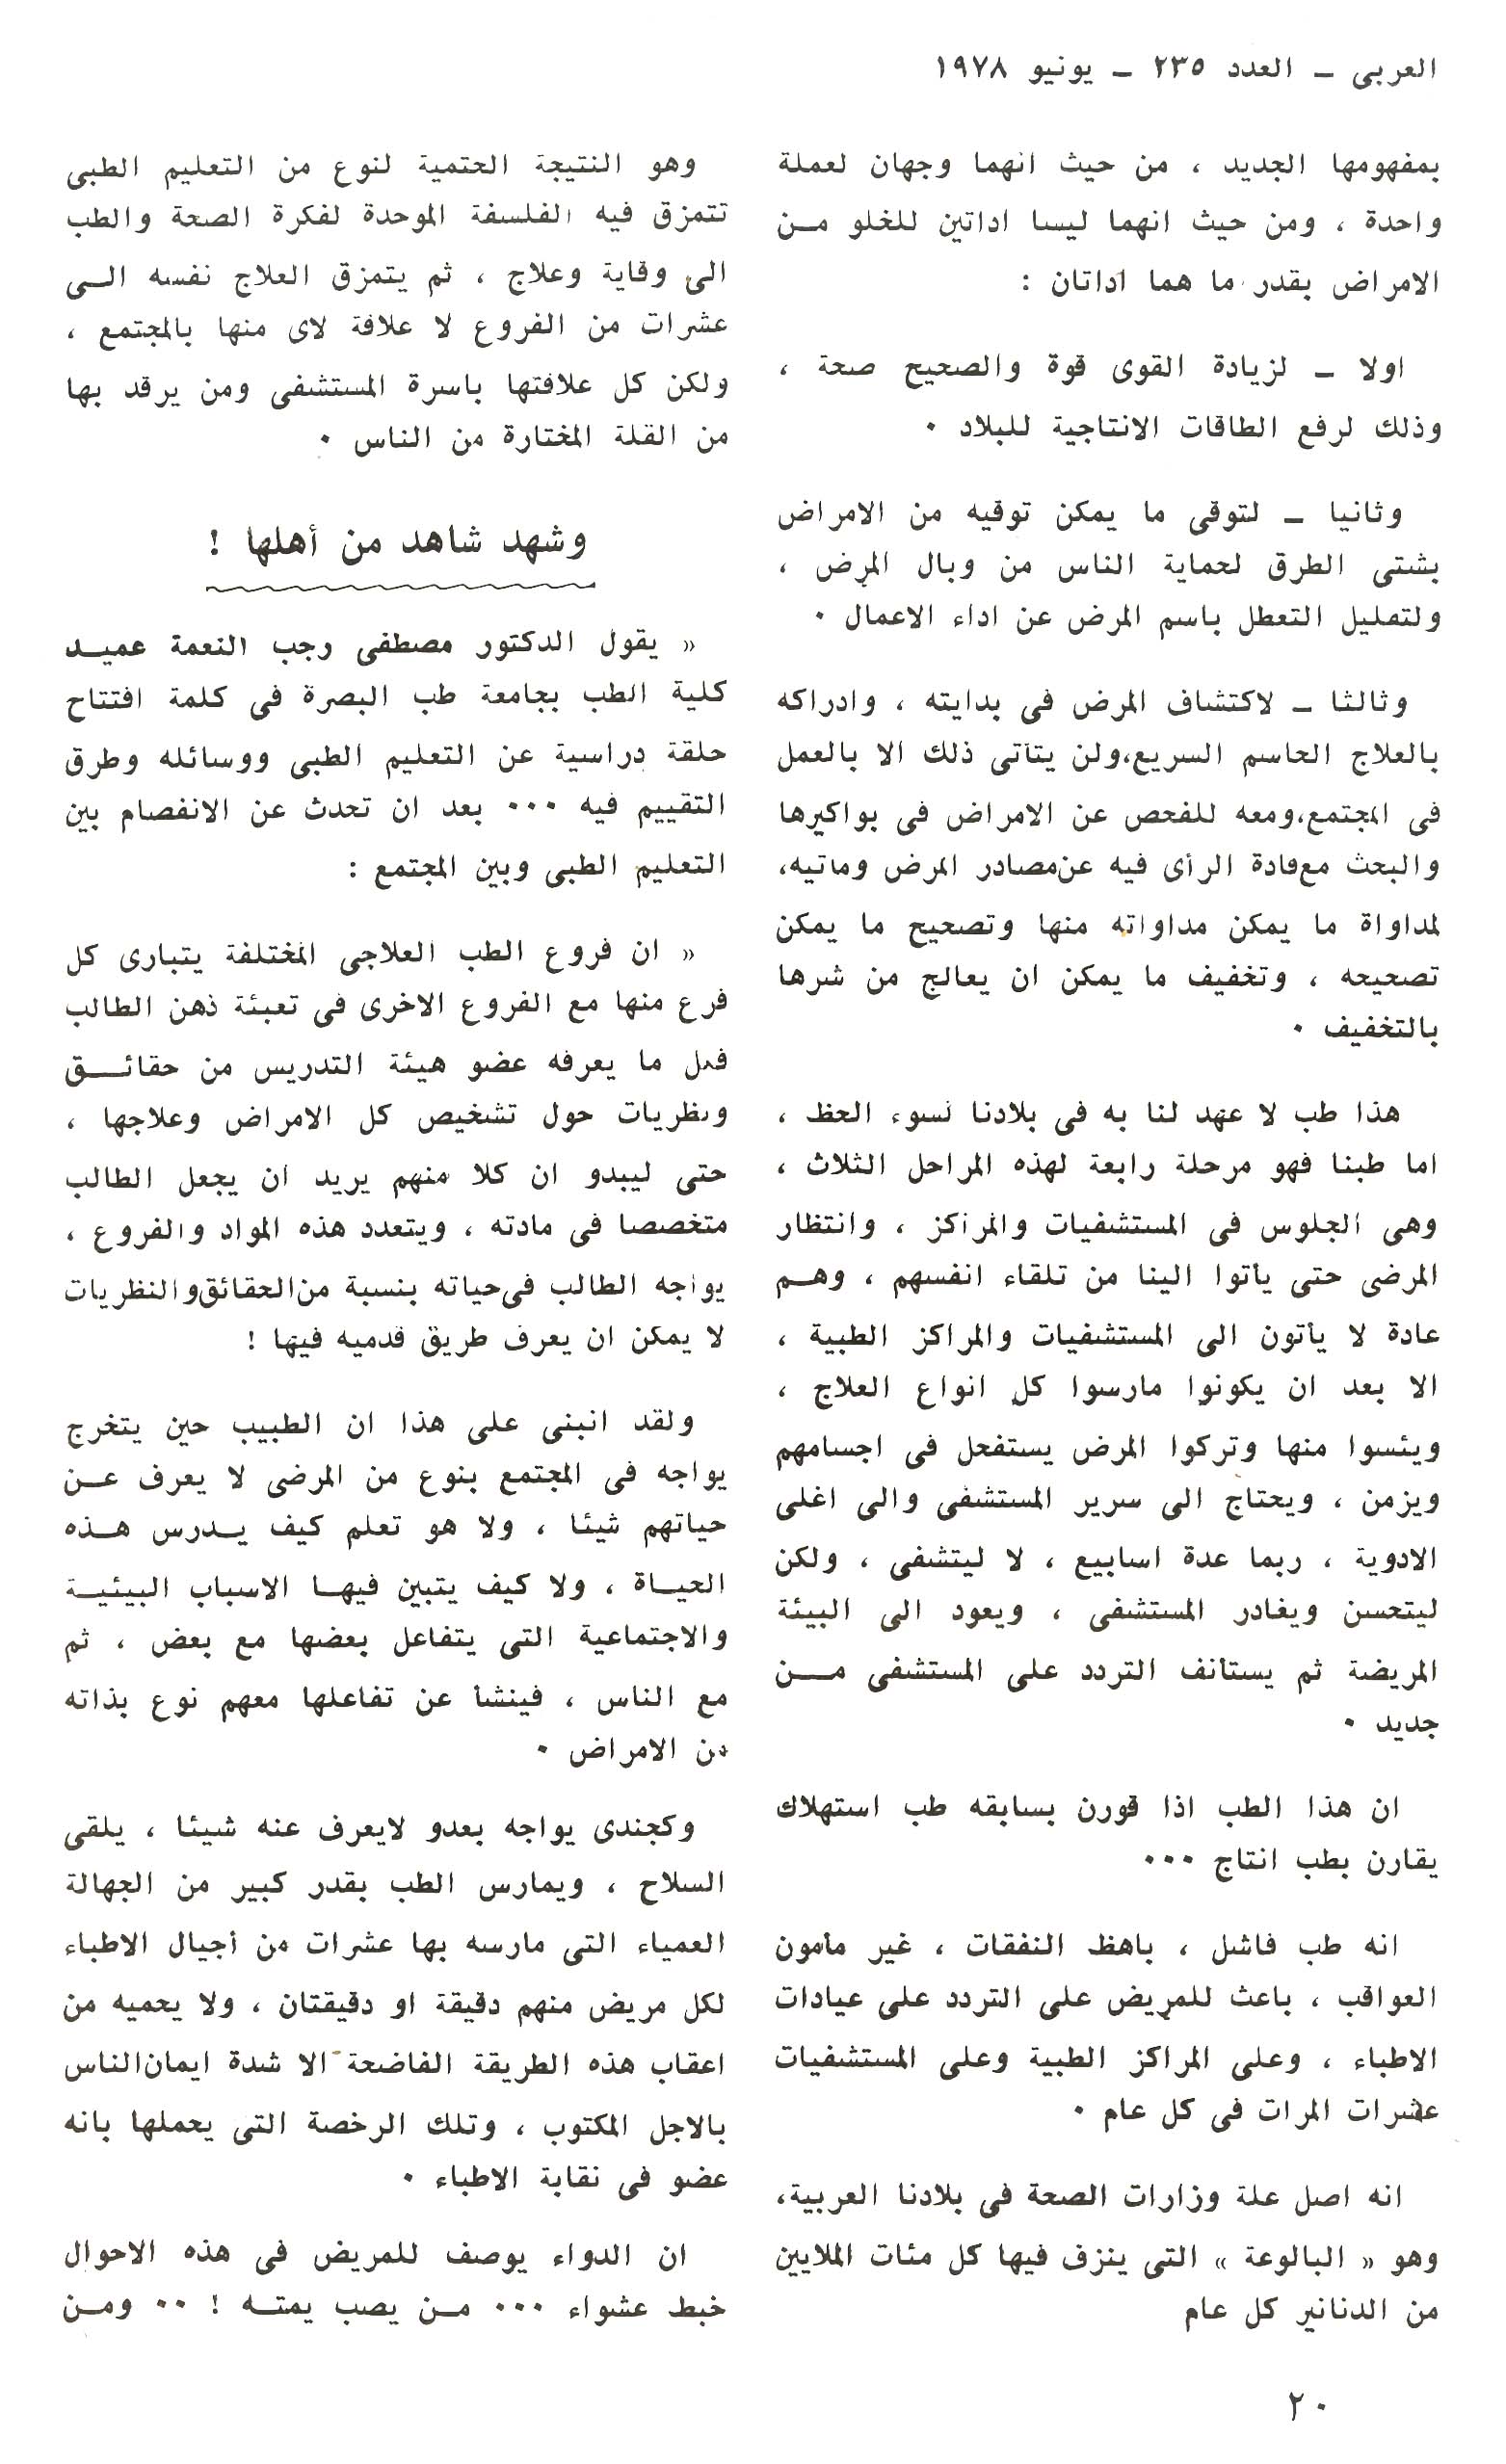 العربى ــ العدد ٢٣٥ ــ يونيو ١٩٧٨
بمفهومها الجديد ، من حيث انهما وجهان لعملة
واحدة ، ومن حيث انهما ليسا اداتين للخلو مــن
الامراض بقدر ما هما اداتان :
اولا ــ لزيادة القوى قوة والصحيح صحة ،
وذلك لرفع الطاقات الانتاجية للبلاد .
وثانيا ــ لتوقى ما يمكن توقيه من الامراض
بشتى الطرق لحماية الناس من وبال المرض ،
ولتقليل التعطل باسم المرض عن اداء الاعمال .
وثالثا ــ لاكتشاف المرض فى بدايته ، وادراكه
بالعلاج الحاسم السريع،ولن يتأتى ذلك الا بالعمل
فى المجتمع،ومعه للفحص عن الامراض فى بواكيرها
والبحث مع قادة الرأى فيه عن مصادر المرض ومآتيه،
لمداواة ما يمكن مداواته منها وتصحيح ما يمكن
تصحيحه ، وتخفيف ما يمكن ان يعالج من شرها
بالتخفيف .
هذا طب لا عهد لنا به فى بلادنا لسوء الحظ ،
اما طبنا فهو مرحلة رابعة لهذه المراحل الثلاث ،
وهى الجلوس فى المستشفيات والمراكز ، وانتظار
المرضى حتى يأتوا الينا من تلقاء انفسهم ، وهــم
عادة لا يأتون الى المستشفيات والمراكز الطبية ،
الا بعد ان يكونوا مارسوا كل انواع العلاج ،
ويئسوا منها وتركوا المرض يستفحل فى اجسامهم
ويزمن ، ويحتاج الى سرير المستشفى والى اغلى
الادوية ، ربما عدة اسابيع ، لا ليتشفى ، ولكن
ليتحسن ويغادر المستشفى ، ويعود الى البيئة
المريضة ثم يستأنف التردد على المستشفى مــن
جديد .
ان هذا الطب اذا قورن بسابقه طب استهلاك
يقارن بطب انتاج ...
انه طب فاشل ، باهظ النفقات ، غير مأمون
العواقب ، باعث للمريض على التردد على عيادات
الاطباء ، وعلى المراكز الطبية وعلى المستشفيات
عشرات المرات فى كل عام .
انه اصل علة وزارات الصحة فى بلادنا العربية،
وهو « البالوعة » التى ينزف فيها كل مئات الملايين
من الدنانير كل عام
وهو النتيجة الحتمية لنوع من التعليم الطبى
تتمزق فيه الفلسفة الموحدة لفكرة الصحة والطب
الى وقاية وعلاج ، ثم يتمزق العلاج نفسه الــى
عشرات من الفروع لا علاقة لاى منها بالمجتمع ،
ولكن كل علاقتها باسرة المستشفى ومن يرقد بها
من القلة المختارة من الناس .
وشهد شاهد من أهلها !
« يقول الدكتور مصطفى رجب النعمة عميــد
كلية الطب بجامعة طب البصرة فى كلمة افتتاح
حلقة دراسية عن التعليم الطبى ووسائله وطرق
التقييم فيه ... بعد ان تحدث عن الانفصام بين
التعليم الطبى وبين المجتمع :
« ان فروع الطب العلاجى المختلفة يتبارى كل
فرع منها مع الفروع الاخرى فى تعبئة ذهن الطالب
فكل ما يعرفه عضو هيئة التدريس من حقائــق
ونظريات حول تشخيص كل الامراض وعلاجها ،
حتى ليبدو ان كلا منهم يريد ان يجعل الطالب
متخصصا فى مادته ، ويتعدد هذه المواد والفروع ،
يواجه الطالب فى حياته بنسبة من الحقائق والنظريات
لا يمكن ان يعرف طريق قدميه فيها !
ولقد انبنى على هذا ان الطبيب حين يتخرج
يواجه فى المجتمع بنوع من المرضى لا يعرف عــن
حياتهم شيئا ، ولا هو تعلم كيف يــدرس هــذه
الحيــاة ، ولا كيف يتبين فيهــا الاسباب البيئيــة
والاجتماعية التى يتفاعل بعضها مع بعض ، ثم
مع الناس ، فينشأ عن تفاعلها معهم نوع بذاته
من الامراض .
وكجندى يواجه بعدو لايعرف عنه شيئا ، يلقى
السلاح ، ويمارس الطب بقدر كبير من الجهالة
العمياء التى مارسه بها عشرات من أجيال الاطباء
لكل مريض منهم دقيقة او دقيقتان ، ولا يحميه من
اعقاب هذه الطريقة الفاضحة الا شدة ايمان الناس
بالاجل المكتوب ، وتلك الرخصة التى يحملها بانه
عضو فى نقابة الاطباء .
ان الدواء يوصف للمريض فى هذه الاحوال
خبط عشواء ... مــن يصب يمتــه ! .. ومــن
٢٠